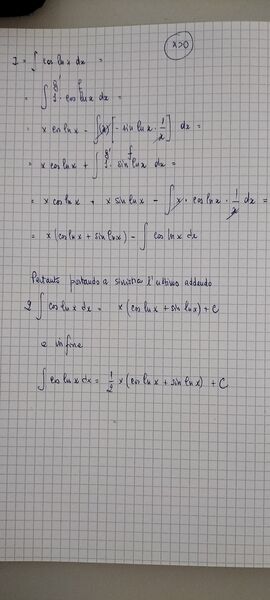 x>0
I = ∫ cos ln x dx =
= ∫ 1 · cos ln x dx =
= x cos ln x - ∫ (x) [ - sin ln x · 1/x ] dx =
= x cos ln x + ∫ 1 · sin ln x dx =
= x cos ln x + x sin ln x - ∫ x · cos ln x · 1/x dx =
= x (cos ln x + sin ln x) - ∫ cos ln x dx
Pertanto portando a sinistra l'ultimo addendo
2 ∫ cos ln x dx = x (cos ln x + sin ln x) + C
e infine
∫ cos ln x dx = 1/2 x (cos ln x + sin ln x) + C